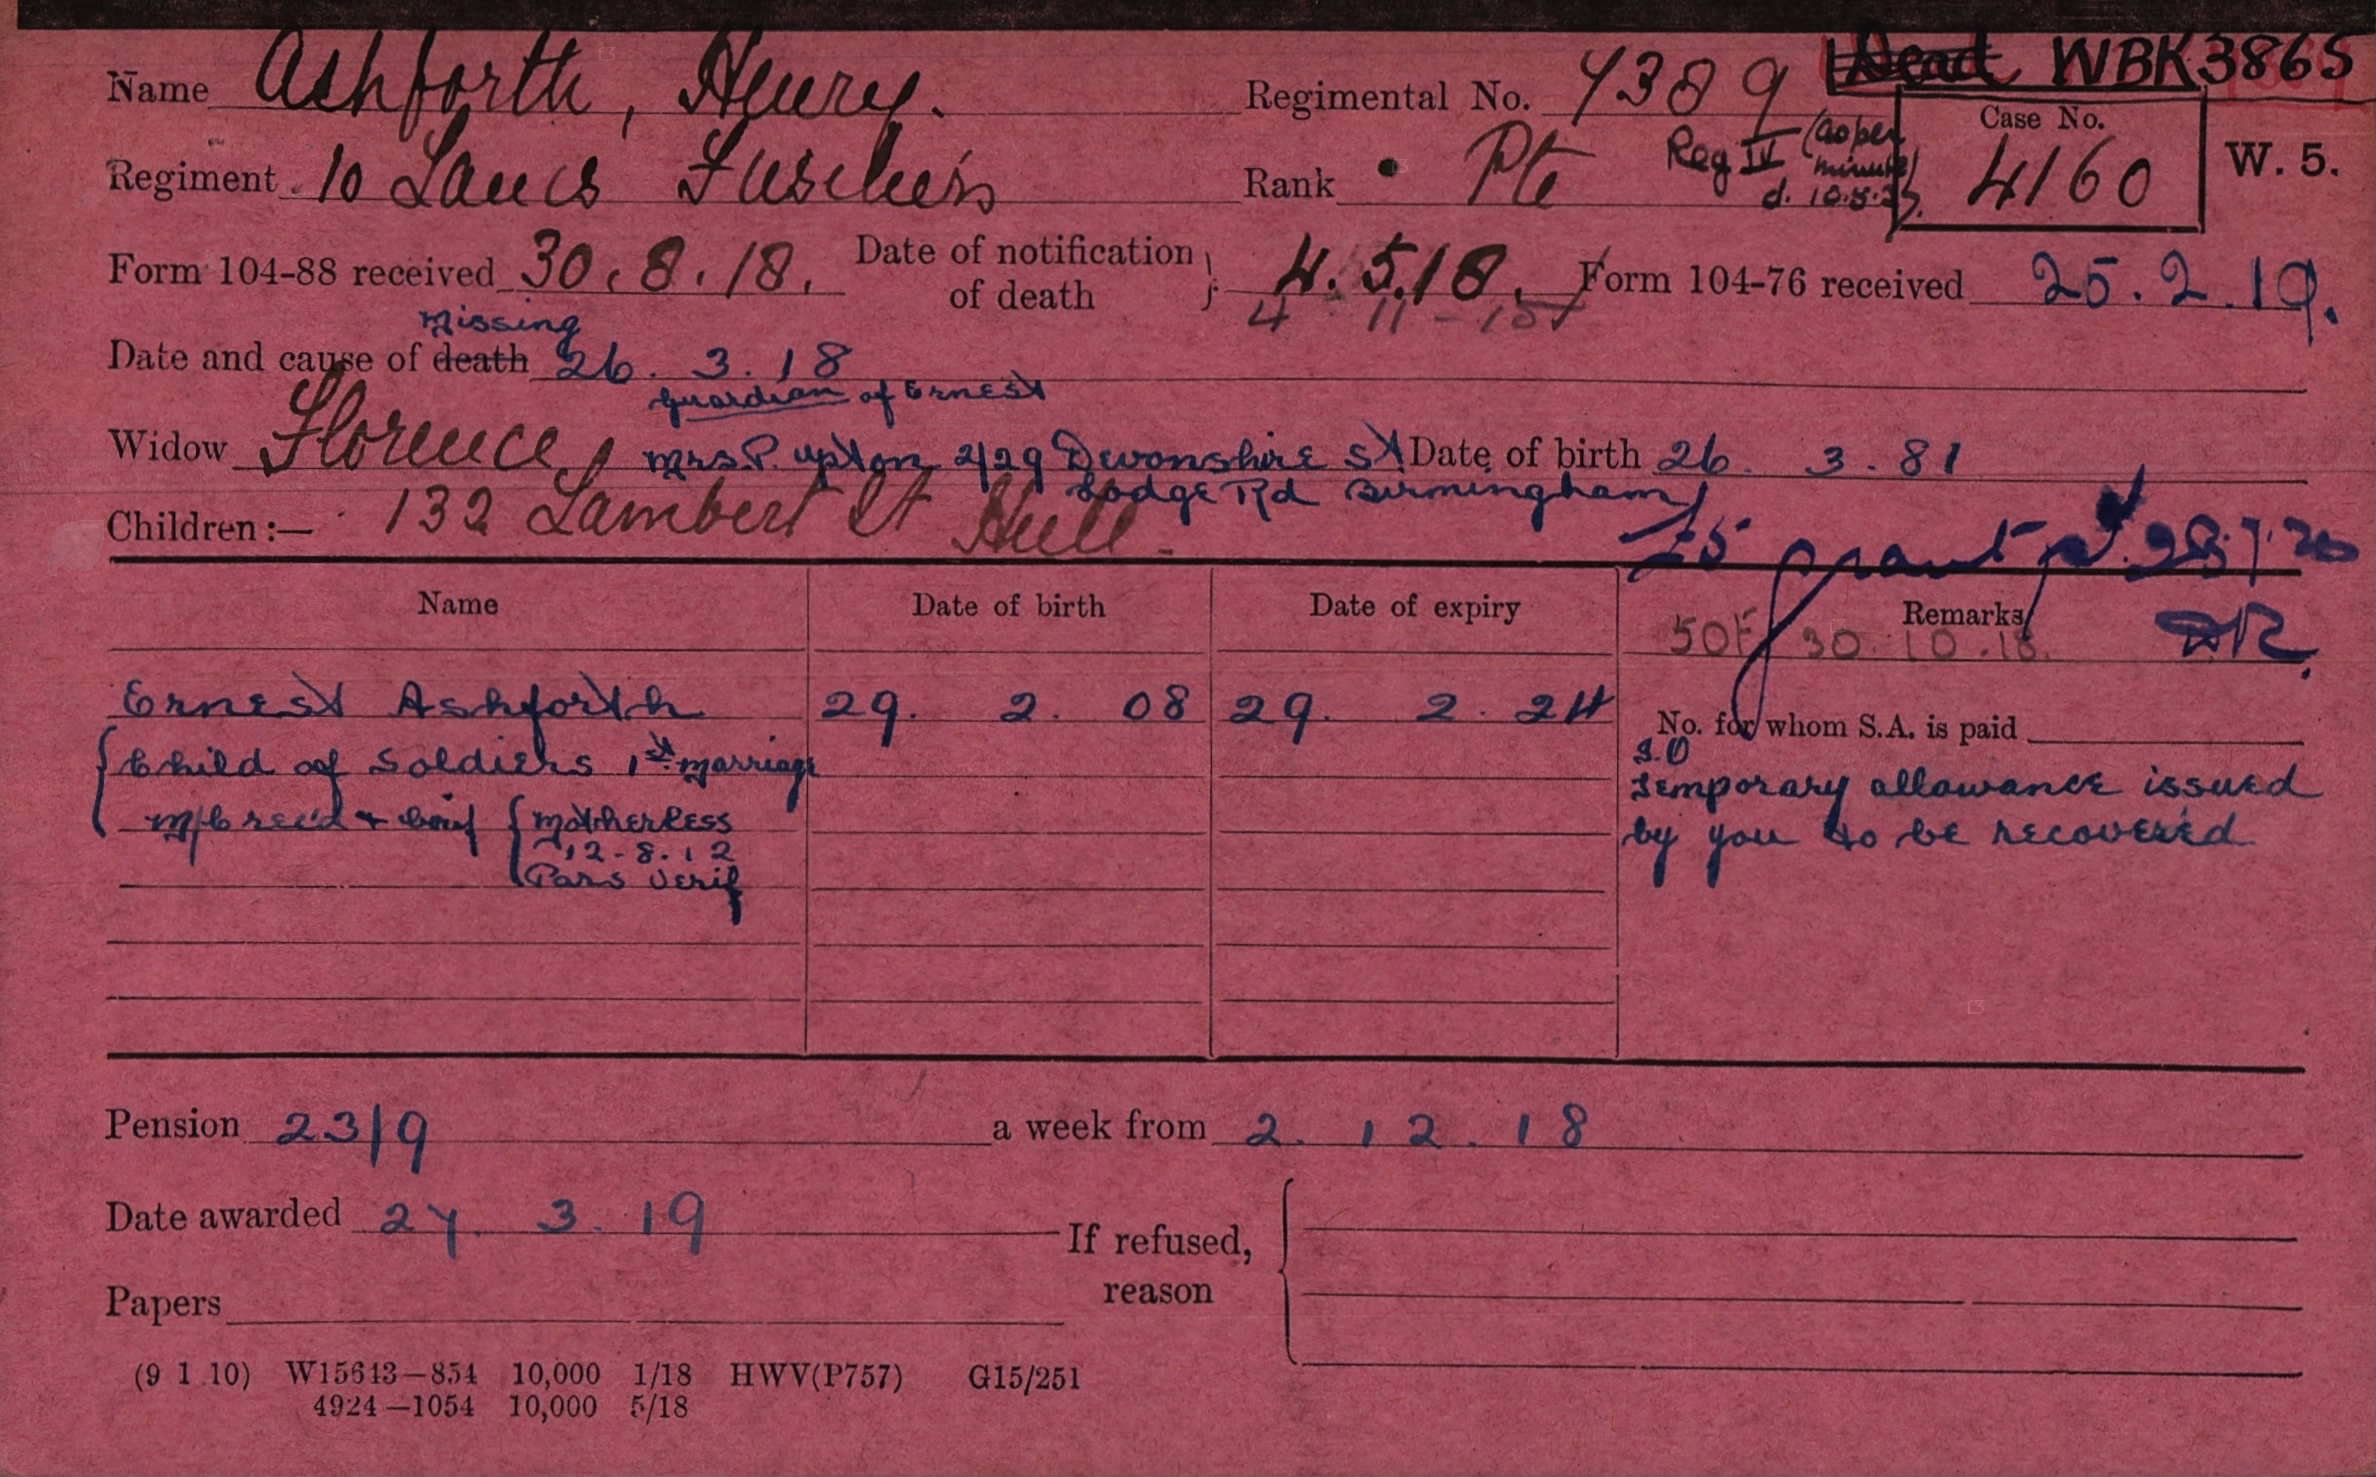 Dead WBK3865
Name Ashforth, Henry. Regimental No. 7389
Case No.
4160
W. 5.
Regiment 10 Lancs Fusiliers Rank Pte Reg IV (as per
minute
d. 10.5.23)
Form 104-88 received 30.8.18. Date of notification of death } 4.5.18. Form 104-76 received 25.2.19.
4-11-18
Missing
Date and cause of death 26.3.18
Guardian of Ernest
Widow Florence, Mrs P. Upton 2/29 Devonshire St Date of birth 26.3.81
Lodge Rd Birmingham
Children :— 132 Lambert St Hull
£5 grant pd. 28.7.20
Name Date of birth Date of expiry Remarks
30.10.18. DR.
Ernest Ashforth 29. 2. 08 29. 2. 24
No. for whom S.A. is paid
{ Child of Soldiers 1st marriage
M/C rec'd + { Motherless
12-8-12
Pars Verif
Temporary allowance issued
by you to be recovered
Pension 23/9 a week from 2.12.18
Date awarded 27.3.19
If refused,
reason
Papers
(9 1 10) W15643—854 10,000 1/18 HWV(P757) G15/251
4924—1054 10,000 5/18